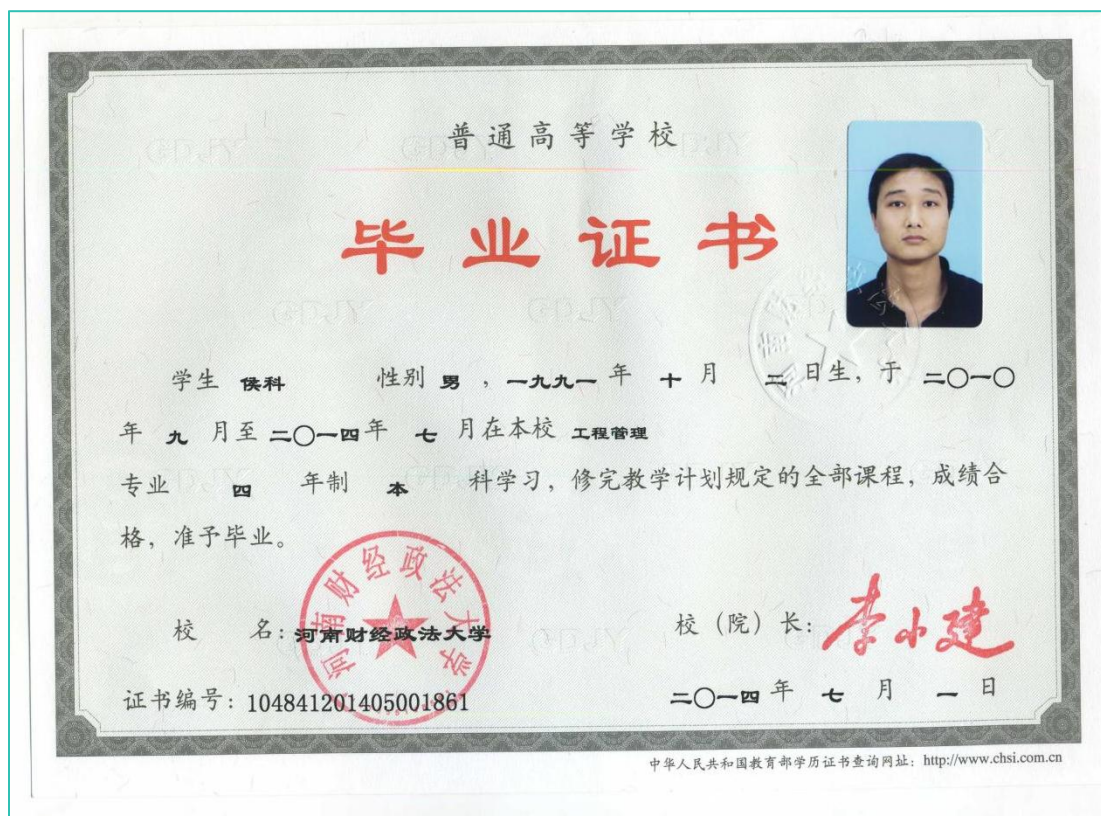 普通高等学校
毕业证书
学生 侯科 性别 男 ，一九九一 年 十 月 二 日生，于 二〇一〇
年 九 月至 二〇一四年 七 月在本校 工程管理
专业 四 年制 本 科学习，修完教学计划规定的全部课程，成绩合
格，准予毕业。
河南财经政法大学
校 名：河南财经政法大学
校（院）长：李小建
证书编号：104841201405001861
二〇一四年 七 月 一 日
中华人民共和国教育部学历证书查询网址：http://www.chsi.com.cn